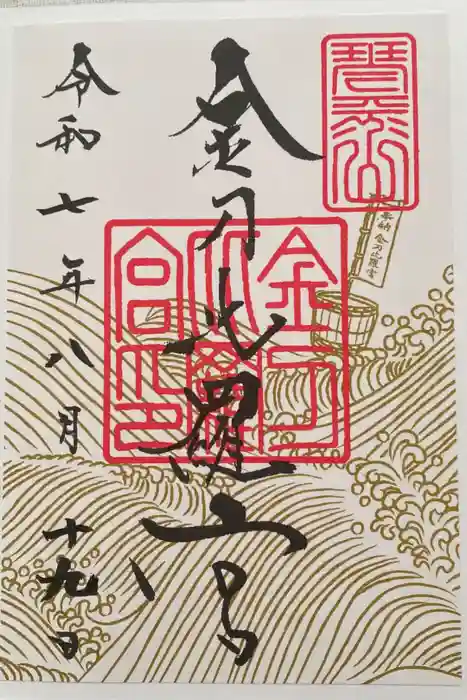 琴平山
奉納 金刀比羅宮
金刀比羅宮
金刀
比羅
宮印
令和七年八月十九日